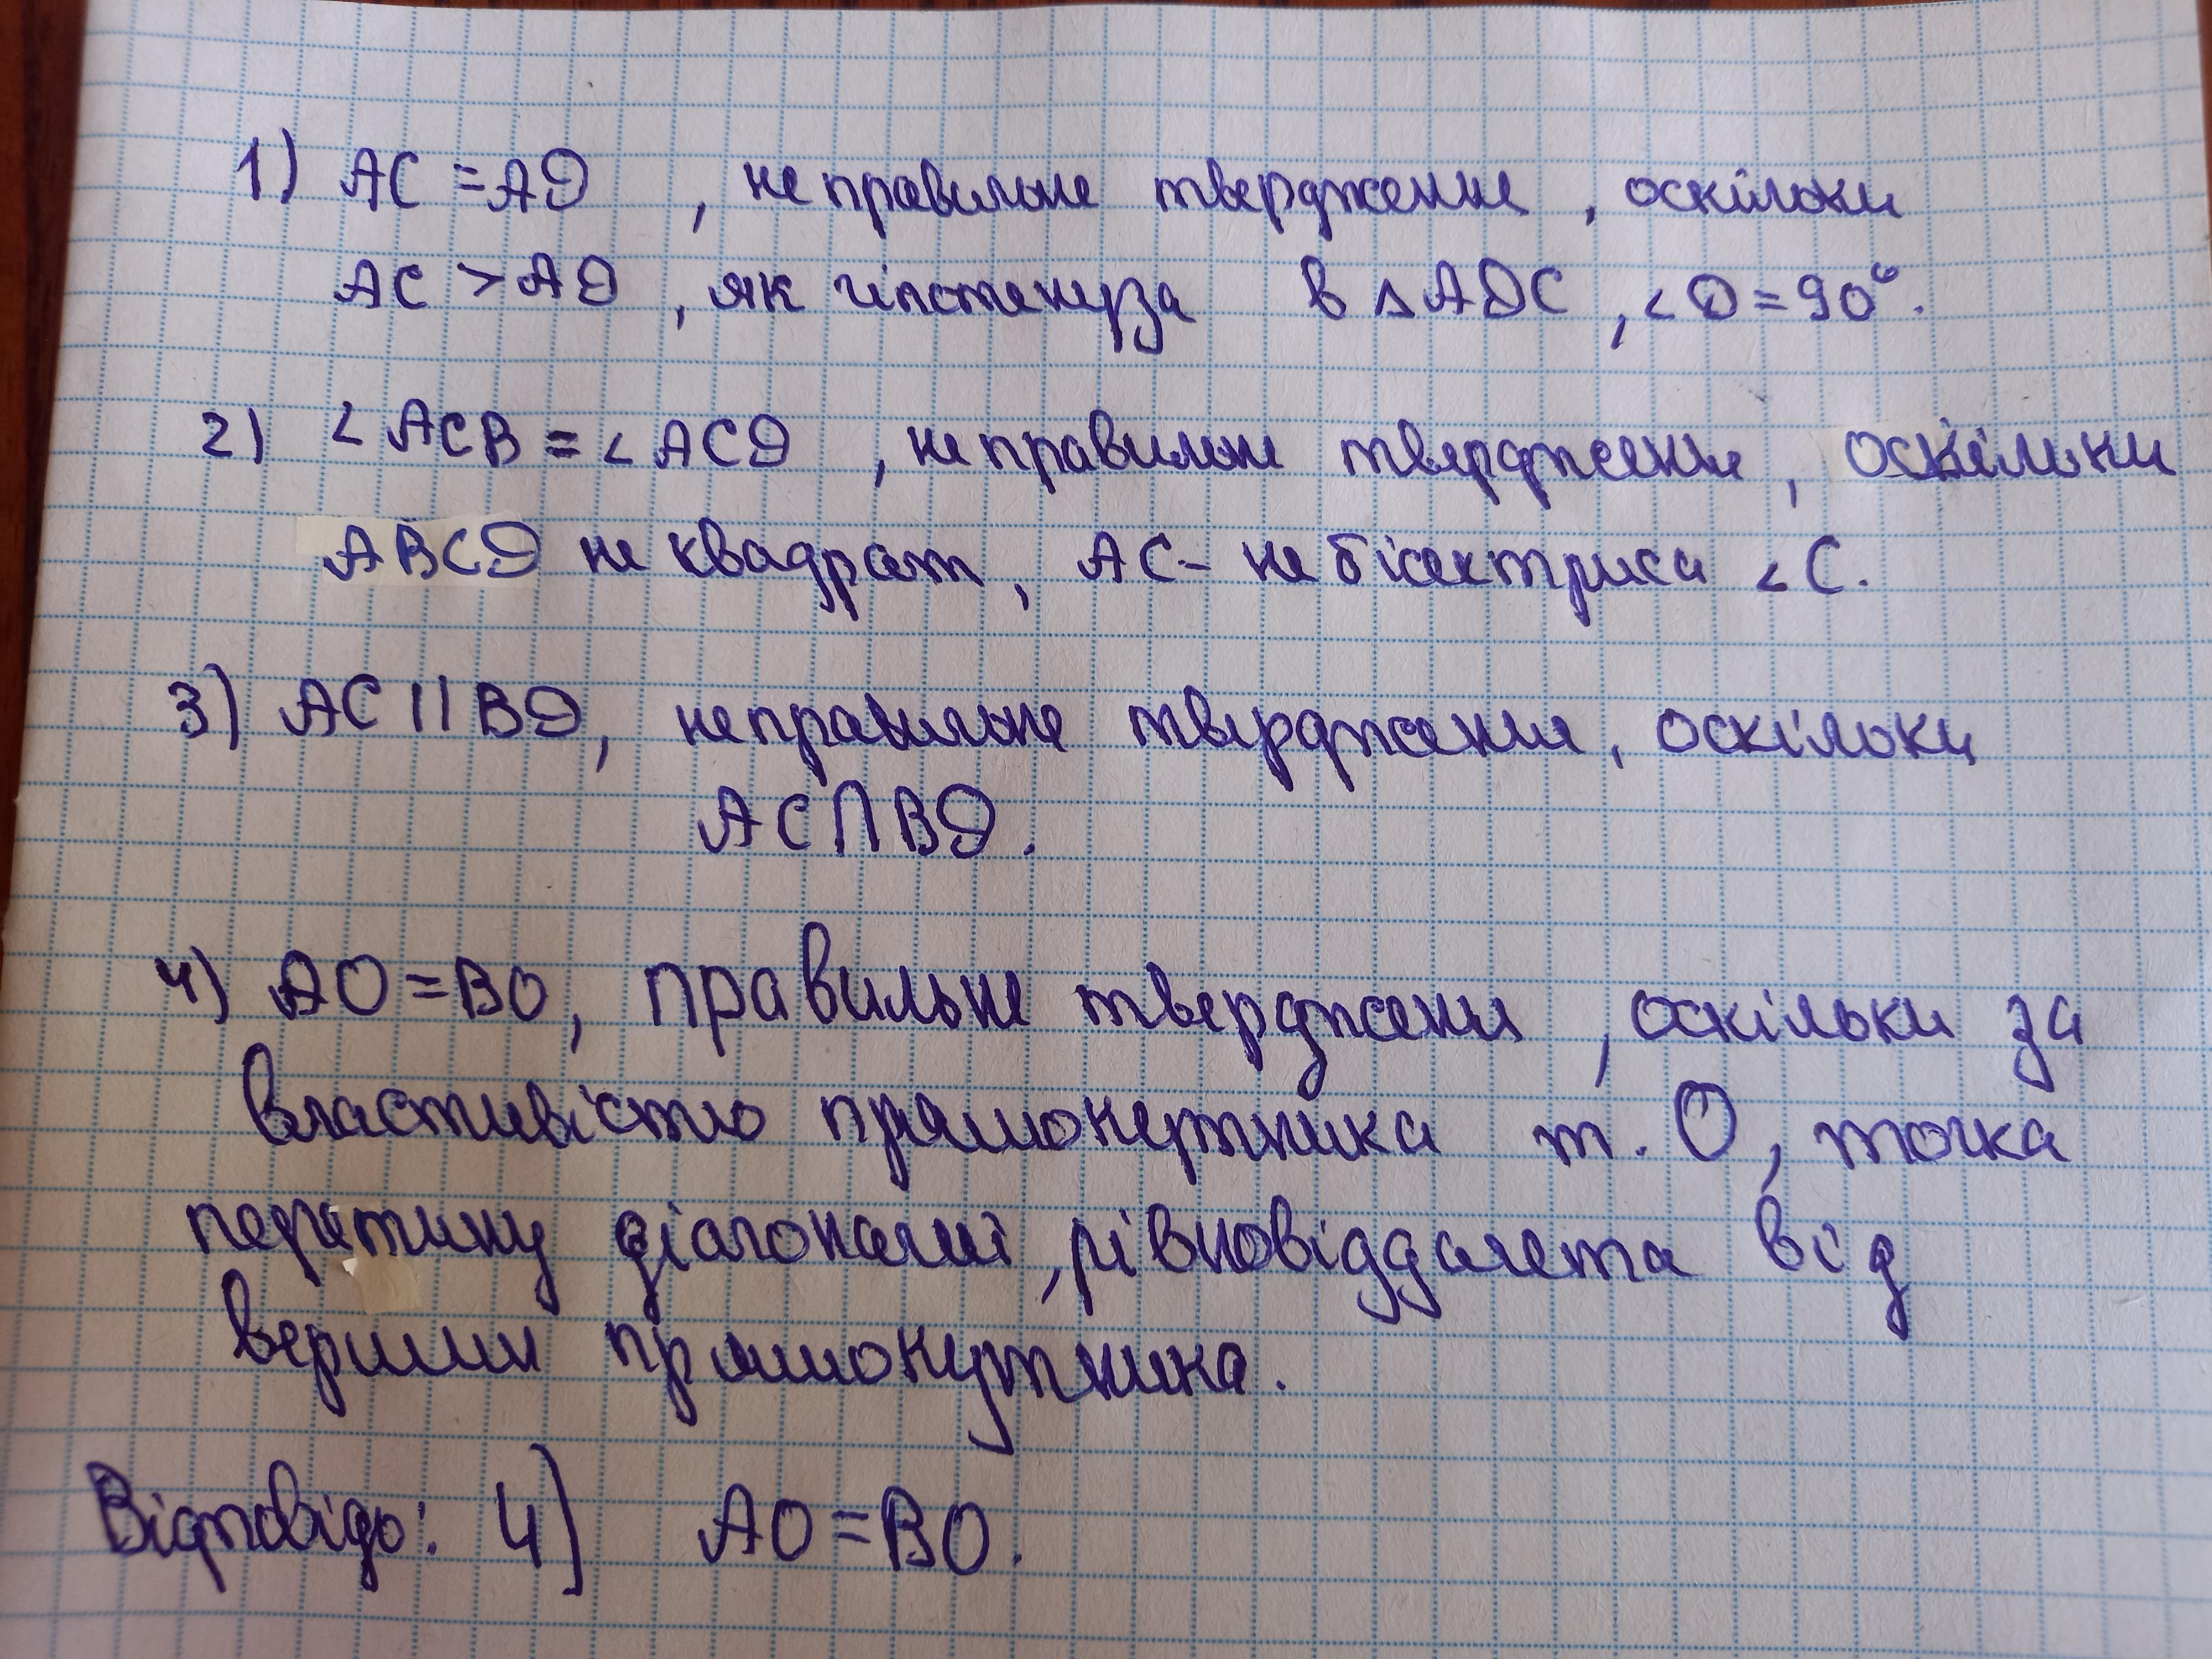 1) AC = AD , неправильне твердження , оскільки
AC > AD , як гіпотенуза в △ ADC , ∠D = 90°.
2) ∠ ACB = ∠ ACD , неправильне твердження , оскільки
ABCD не квадрат , AC - не бісектриса ∠ C.
3) AC || BD, неправильне твердження , оскільки
AC∩BD.
4) AO = BO, правильне твердження , оскільки за
властивістю прямокутника т. O, точка
перетину діагоналей, рівновіддалета від
вершин прямокутника.
Відповідь: 4) AO = BO.